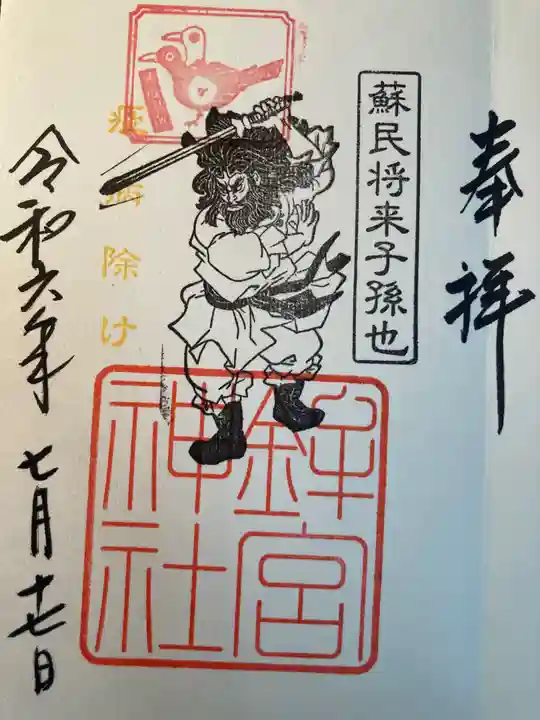 奉拝
蘇民将来子孫也
鉾宮
神社
疫病除け
令和六年 七月十七日